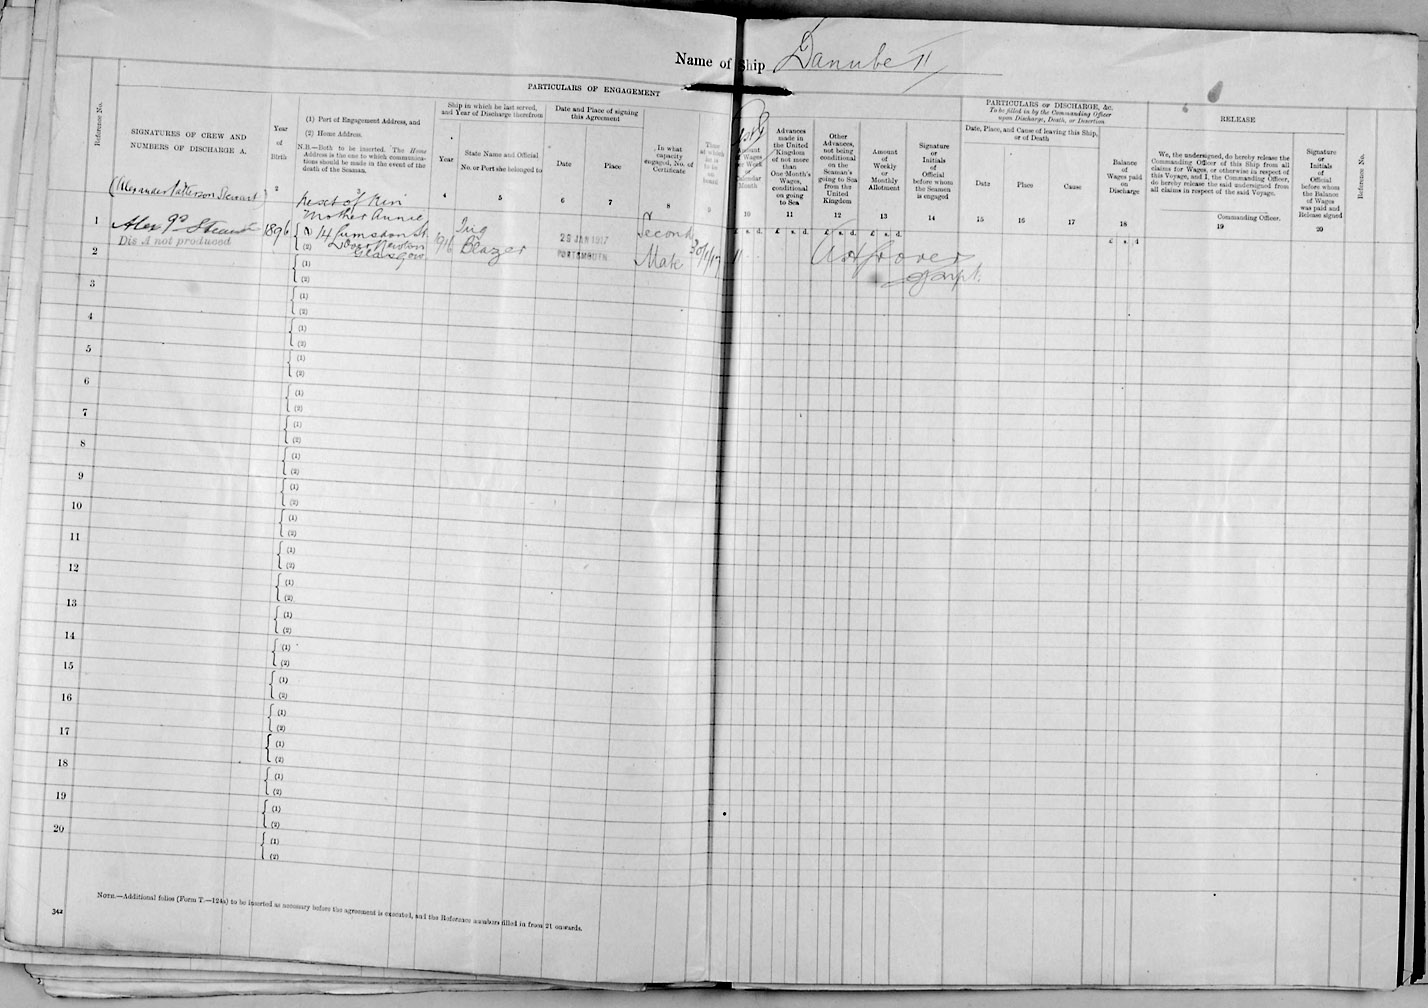 Name of Ship Danube II
PARTICULARS OF ENGAGEMENT
Reference No.
SIGNATURES OF CREW AND
NUMBERS OF DISCHARGE A.
Year
of
Birth
(1) Port of Engagement Address, and
(2) Home Address.
N.B.—Both to be inserted. The Home
Address is the one to which communica-
tions should be made in the event of the
death of the Seaman.
Ship in which he last served,
and Year of Discharge therefrom
Year
State Name and Official
No. or Port she belonged to
Date and Place of signing
this Agreement
Date
Place
In what
capacity
engaged, No. of
Certificate
2
3
4
5
6
7
8
9
(Alexander Paterson Stewart)
1
Dis A not produced
1896
Next of Kin
Mother Annie
14 Lumsden St.
Glasgow
1916
Tug
Blazer
29 JAN 1917
PORTSMOUTH
Second
Mate
30/1/17
Amount
of Wages
per Week
or Calendar
Month
Advances
made in
the United
Kingdom
of not more
than
One Month's
Wages,
conditional
on going
to Sea
Other
Advances,
not being
conditional
on the
Seaman's
going to Sea
from the
United
Kingdom
Amount
of
Weekly
or
Monthly
Allotment
Signature
or
Initials
of
Official
before whom
the Seamen
is engaged
10
11
12
13
14
£ s. d.
£ s. d.
£ s. d.
£ s. d.
PARTICULARS OF DISCHARGE, &c.
To be filled in by the Commanding Officer
upon Discharge, Death, or Desertion
Date, Place, and Cause of leaving this Ship,
or of Death
Date
Place
Cause
Balance
of
Wages paid
on
Discharge
15
16
17
18
£ s. d.
RELEASE
We, the undersigned, do hereby release the
Commanding Officer of this Ship from all
claims for Wages, or otherwise in respect of
this Voyage, and I, the Commanding Officer,
do hereby release the said undersigned from
all claims in respect of the said Voyage.
Commanding Officer.
19
Signature
or
Initials
of
Official
before whom
the Balance
of Wages
was paid and
Release signed
20
Reference No.
(1)
(2)
2
(1)
(2)
3
(1)
(2)
4
(1)
(2)
5
(1)
(2)
6
(1)
(2)
7
(1)
(2)
8
(1)
(2)
9
(1)
(2)
10
(1)
(2)
11
(1)
(2)
12
(1)
(2)
13
(1)
(2)
14
(1)
(2)
15
(1)
(2)
16
(1)
(2)
17
(1)
(2)
18
(1)
(2)
19
(1)
(2)
20
(1)
(2)
NOTE.—Additional folios (Form T.—124a) to be inserted as necessary before the agreement is executed, and the Reference numbers filled in from 21 onwards.